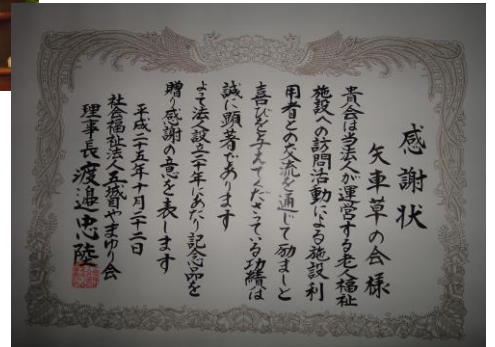 感謝状
矢車草の会様
貴会は当法人が運営する老人福祉
施設への訪問活動による施設利
用者との交流を通じて励ましと
喜びを与えてくださっている功績は
誠に顕著であります
よって法人設立二十年にあたり記念品を
贈り感謝の意を表します
平成二十五年十月二十二日
社会福祉法人五城目やまゆり会
理事長 渡邉忠陸